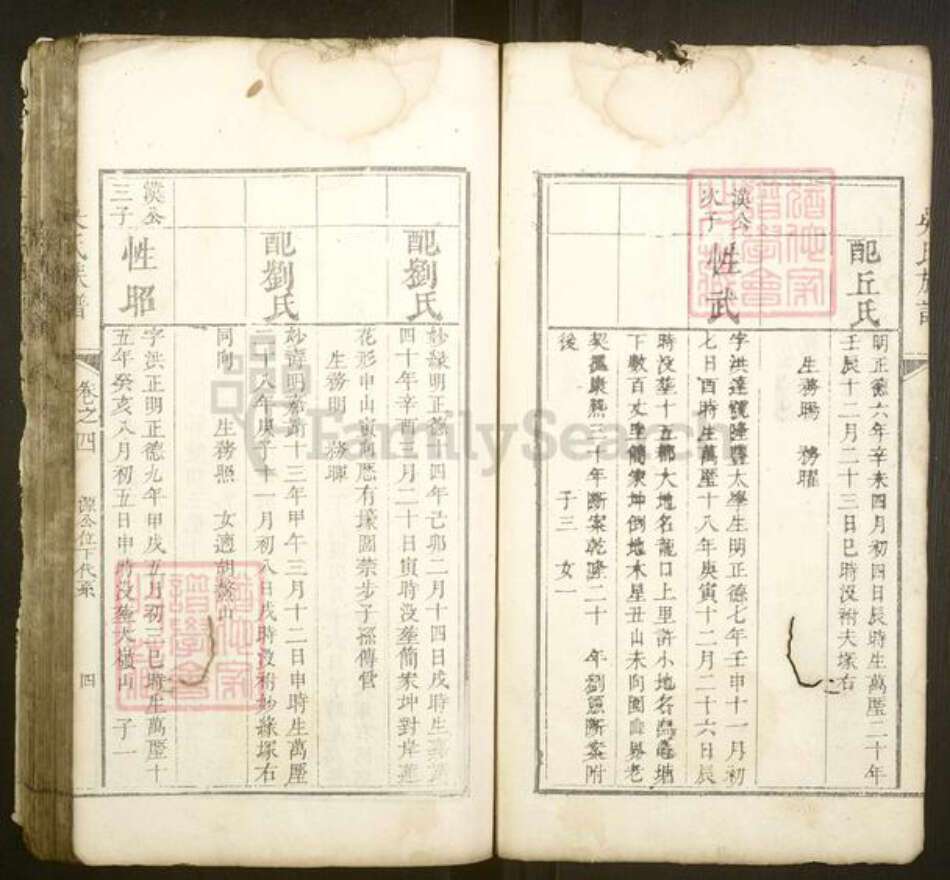 配丘氏
明正德六年辛未四月初四日辰時生萬曆二十年
壬辰十二月二十三日巳時沒祔夫塚右
生務賜 務曜
漢公
次子
性武
字洪達號隆歷太學生明正德七年壬申十一月初
七日酉時生萬曆十八年庚寅十二月二十六日辰
時沒葬十五都大地名龍口上里許小地名 塘
下數百丈 簡家坤倒地木星丑山未向 界老
契 康熙三十年斷案乾隆二十 年劉 斷案附
後 子三 女一
配劉氏
妙緣明正德十四年己卯二月十四日戌時生萬曆
四十年辛酉三月二十日寅時沒葬簡家坤對岸蓮
花形申山寅向歷有壕圖禁步子孫傳管
生務明 務暉
配劉氏
妙 明嘉靖十三年甲午三月十二日申時生萬曆
二十八年庚子十一月初八日戌時沒祔妙緣塚右
同向 生務照 女適胡 山
漢公
三子
性昭
字洪正明正德九年甲戌五月初三巳時生萬曆十
五年癸亥八月初五日申時沒葬大嶺山 子一
氏族譜
卷之四
漂公位下代系 四
FamilySearch